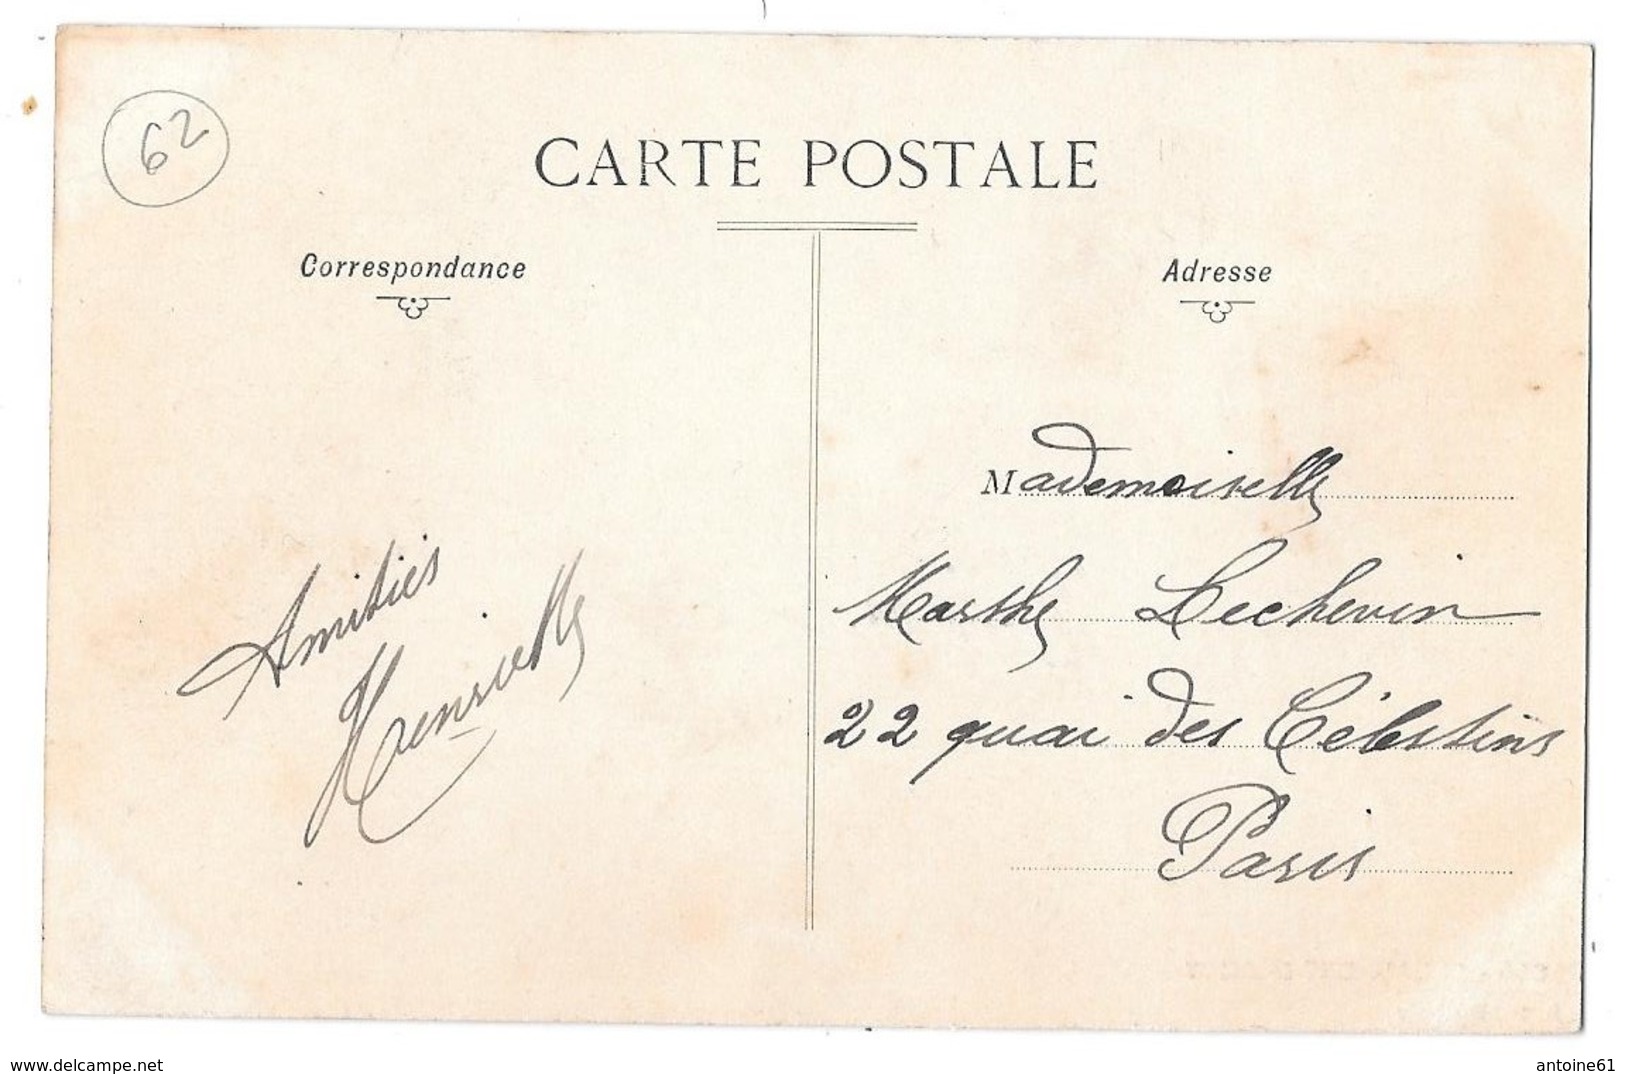 62
CARTE POSTALE
Correspondance
Adresse
Amitiés
Henriette
Mademoiselle
Marthe Lechevin
22 quai des Célestins
Paris
www.delcampe.net
antoine61